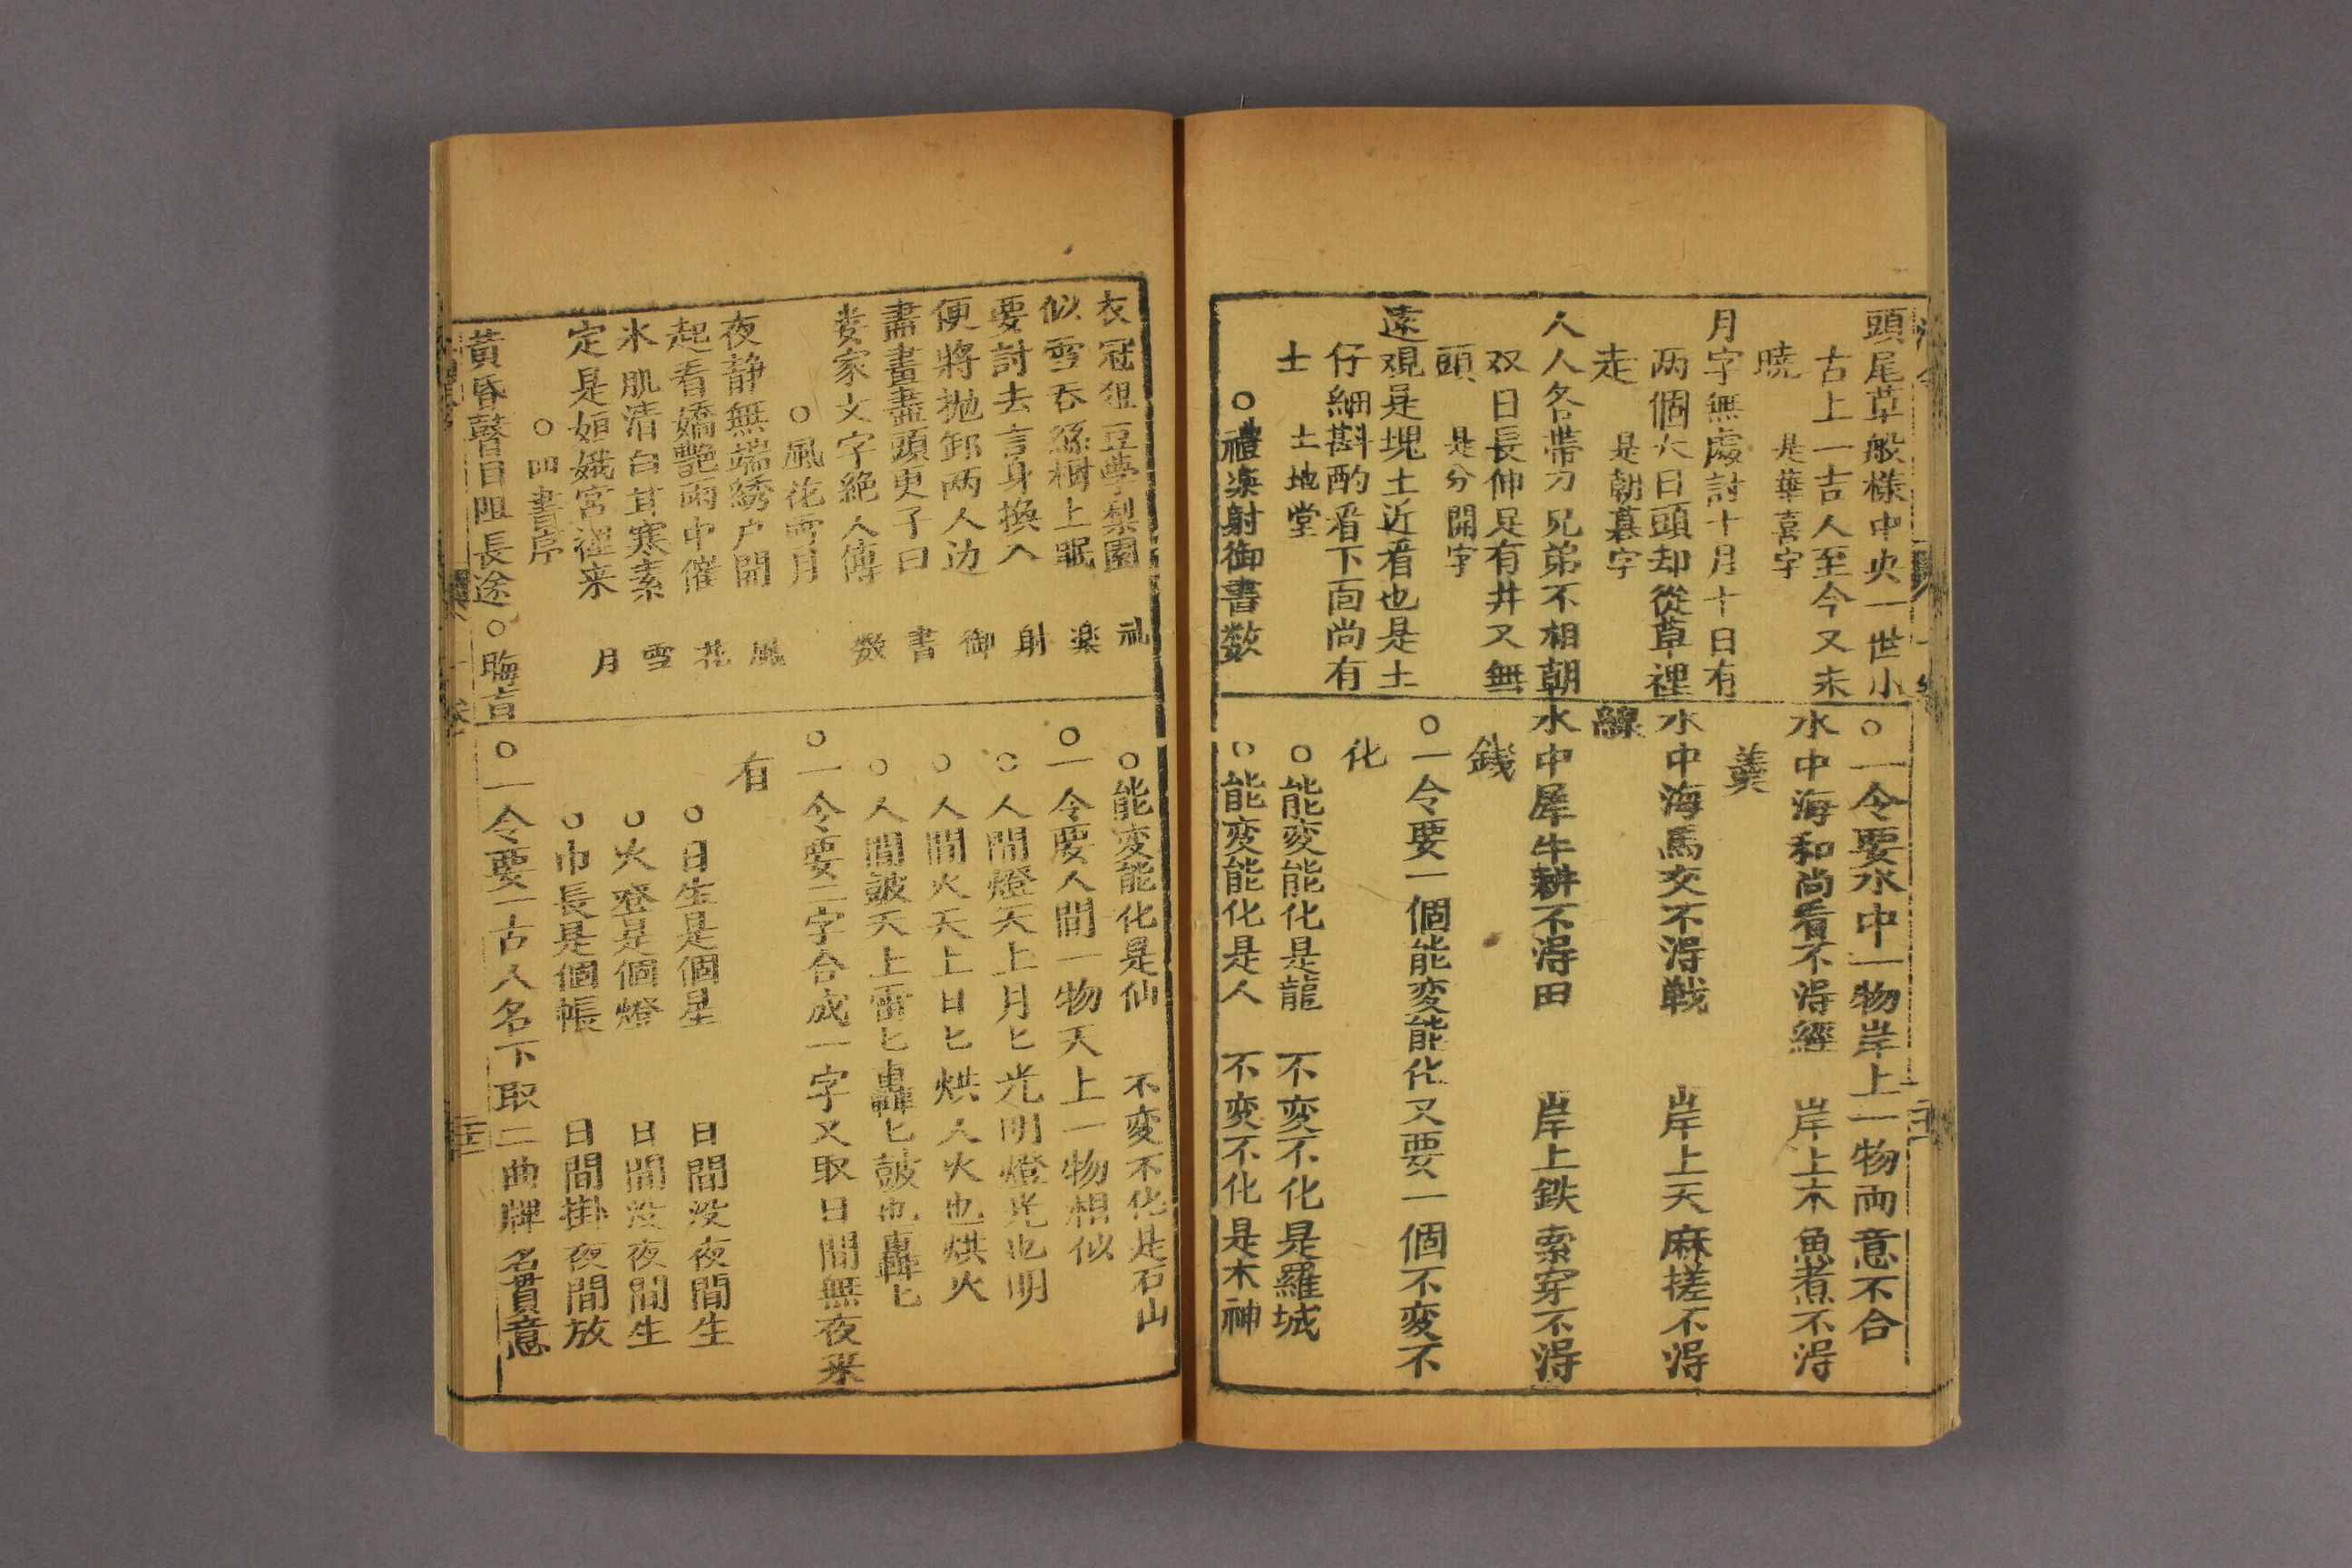 頭尾草般樣中央一世小
古上一吉人至今又未
曉 是華喜字
月字無處討十月十日有
两個大日頭却從草裡
走 是朝暮字
人人各帶刀兄弟不相朝
双日長伸足有井又無
頭 是分開字
遠觀是塊土近看也是土
仔細斟酌看下面尚有
士 土地堂
○禮楽射御書数
○一令要水中一物岸上一物両意不合
水中海和尚看不淂經 岸上木魚煮不淂
羮
水中海馬交不淂戦 岸上天麻搓不淂
線
水中犀牛耕不淂田 岸上鉄索穿不淂
銭
○一令要一個能変能化又要一個不変不
化
○能変能化是龍 不変不化是羅城
○能変能化是人 不変不化是木神
衣冠狙豆學梨園 礼
似雪吞絲樹上眠 楽
要討去言身換入 射
便將抛卸两人边 御
畵晝畫盡頭更子曰 書
娄家文字絶人傳 数
○風花雪月
夜静無端綉户開 風
起看嬌艷雨中催 花
氷肌清白茸寒素 雪
定是姮娥宮裡来 月
○四書序
黃昏瞽目阻長途○晦盲
○能変能化是仙 不変不化是石山
○一令要人間一物天上一物相似
○人間燈天上月匕光明燈光也明
○人間火天上日匕烘人火也烘火
○人間皷天上雷匕轟匕皷也轟匕
○一令要二字合成一字又取日間無夜来
有
○日生是個星 日間没夜間生
○火登是個燈 日間没夜間生
○巾長是個帳 日間掛夜間放
○一令要一古人名下取二曲牌名貫意